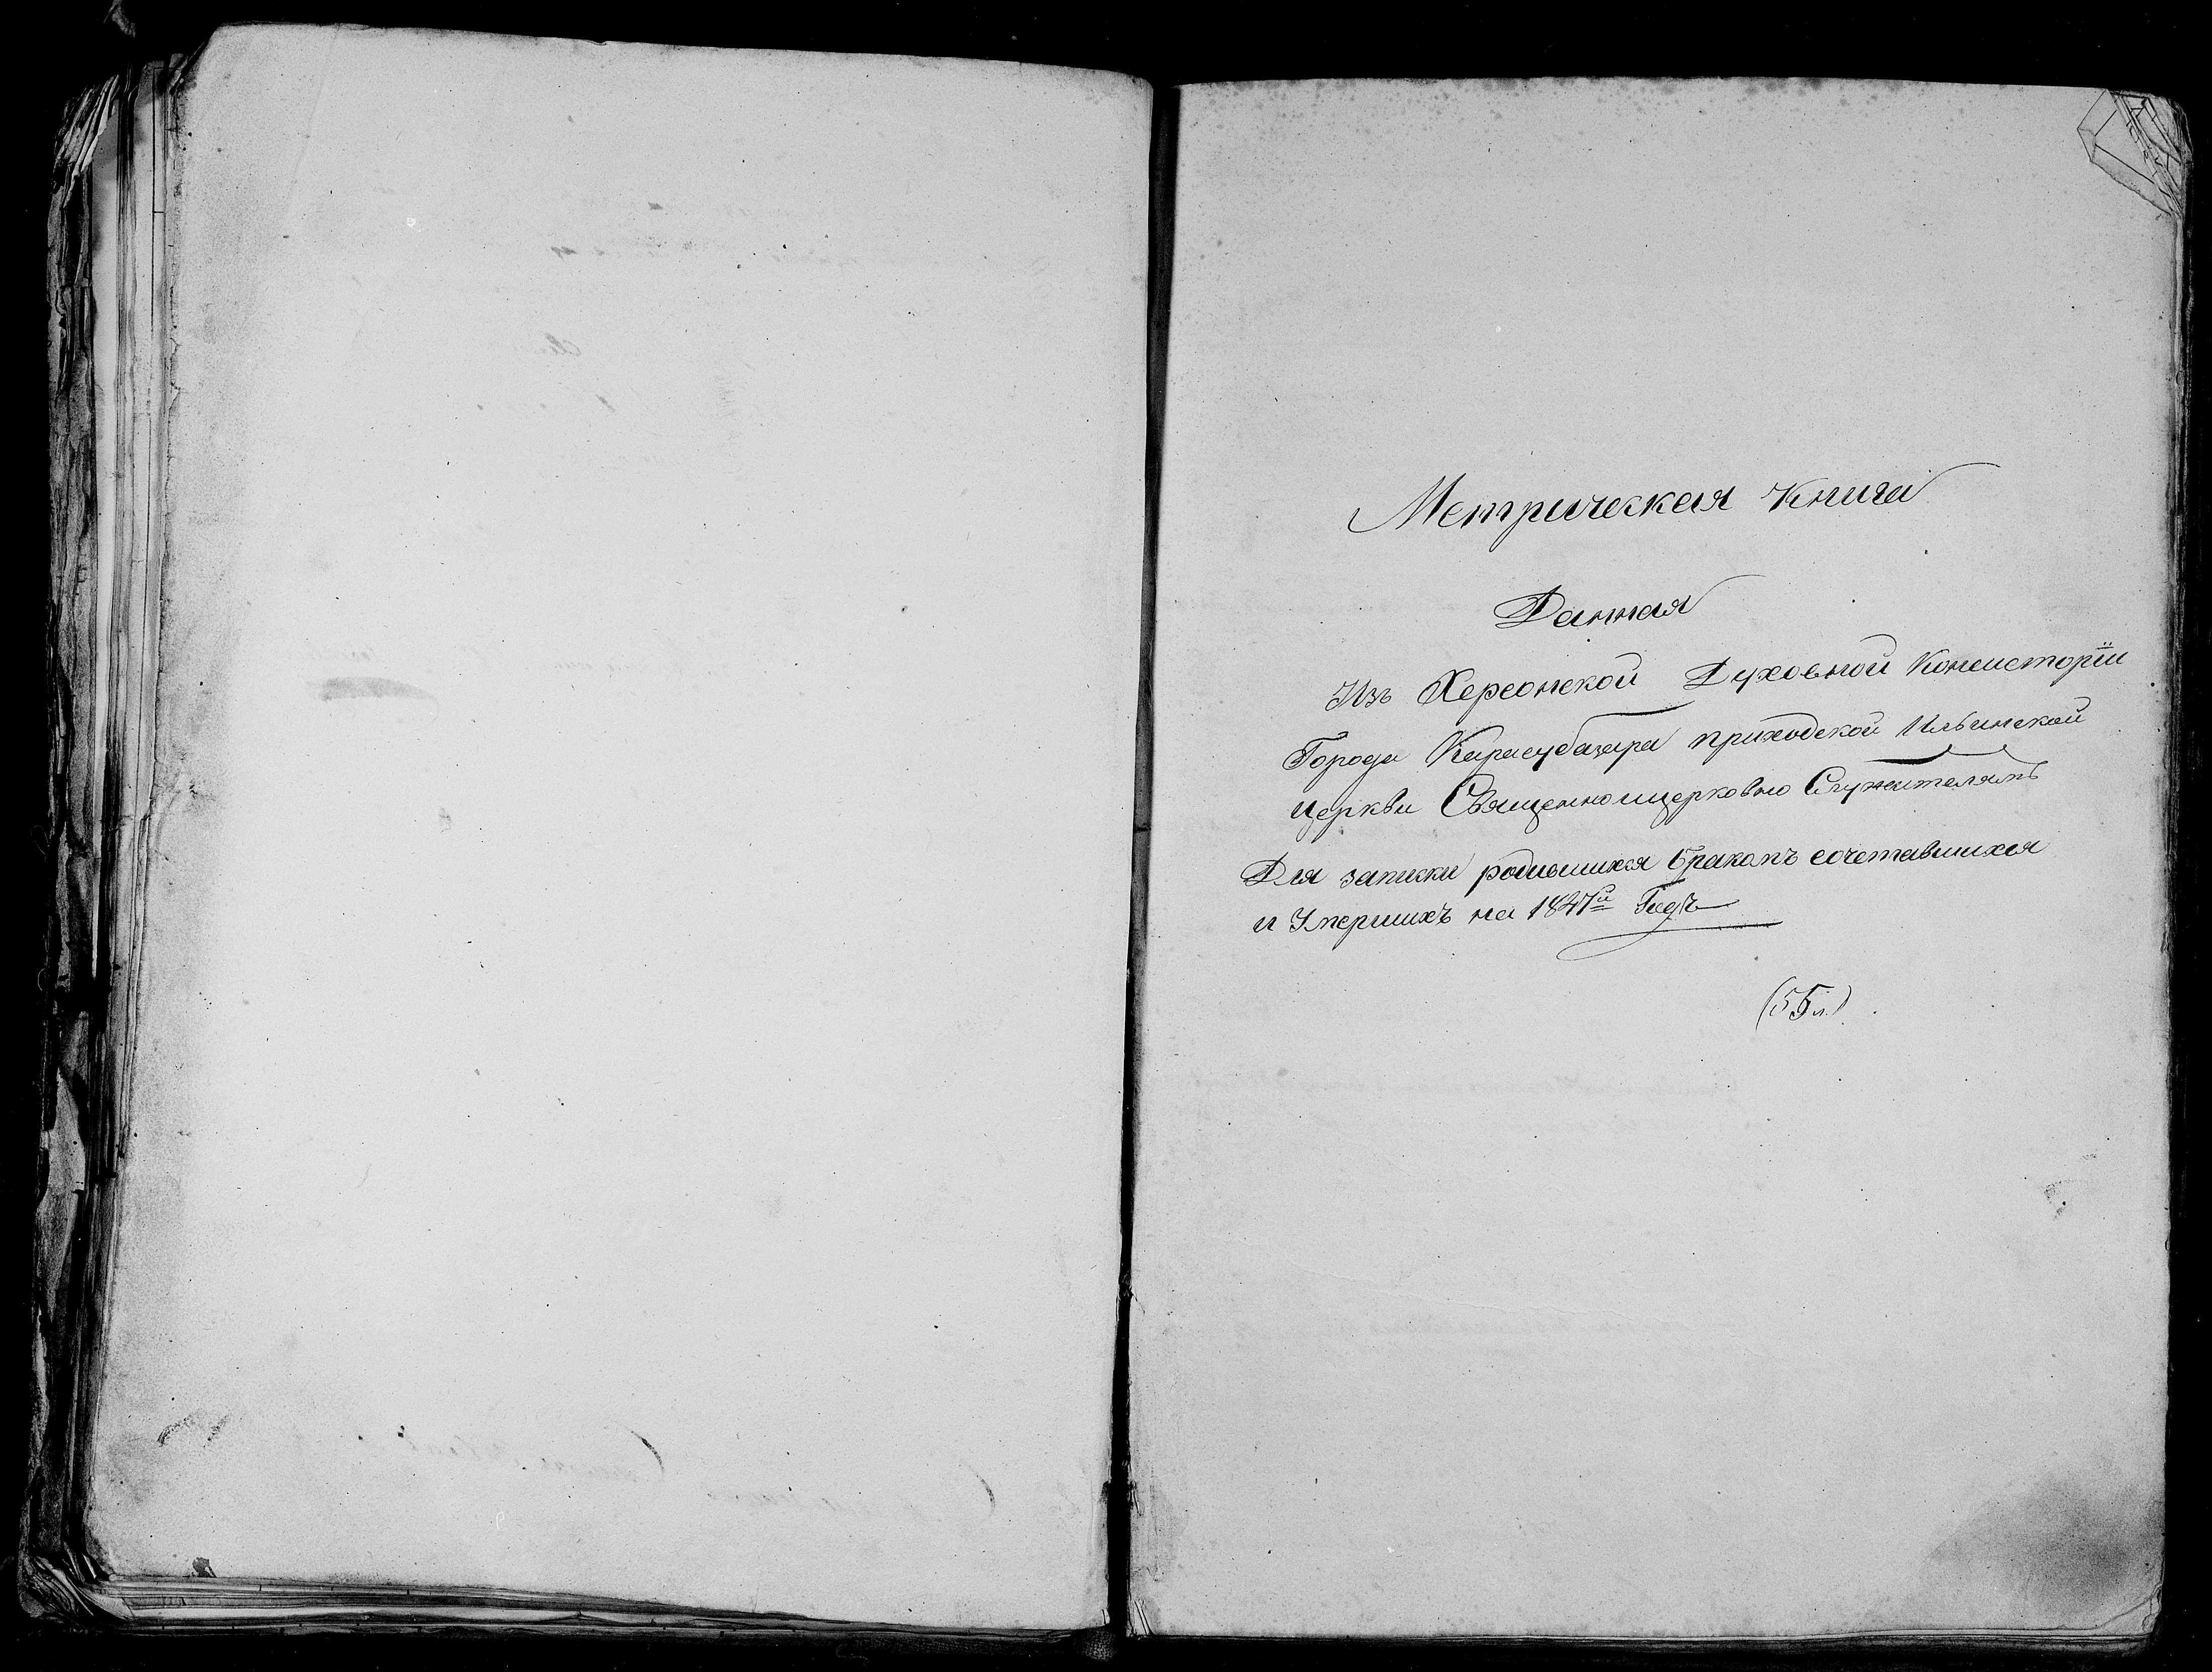 Метрическая Книга
Данная
Изъ Херсонской Духовной Консисторіи
Города Карасубазара приходской Ильинской
церкви Священноицерковно Служителямъ
Для записки родившихся бракомъ сочетавшихся
и Умершихъ на 1847й Годъ
(55 л.)